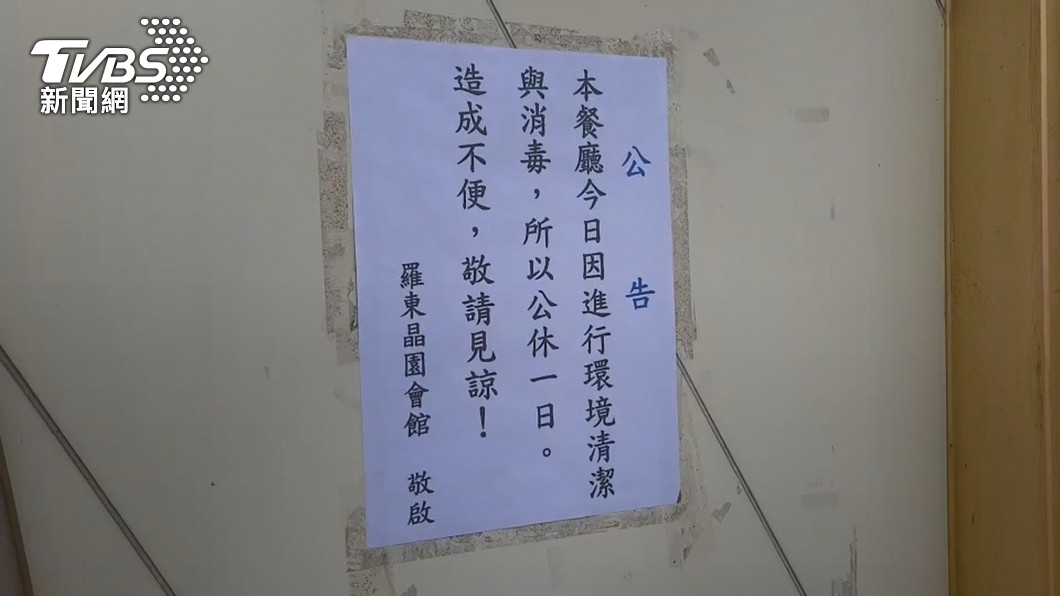 TVBS
新聞網
公告
本餐廳今日因進行環境清潔
與消毒，所以公休一日。
造成不便，敬請見諒！
羅東晶園會館 敬啟